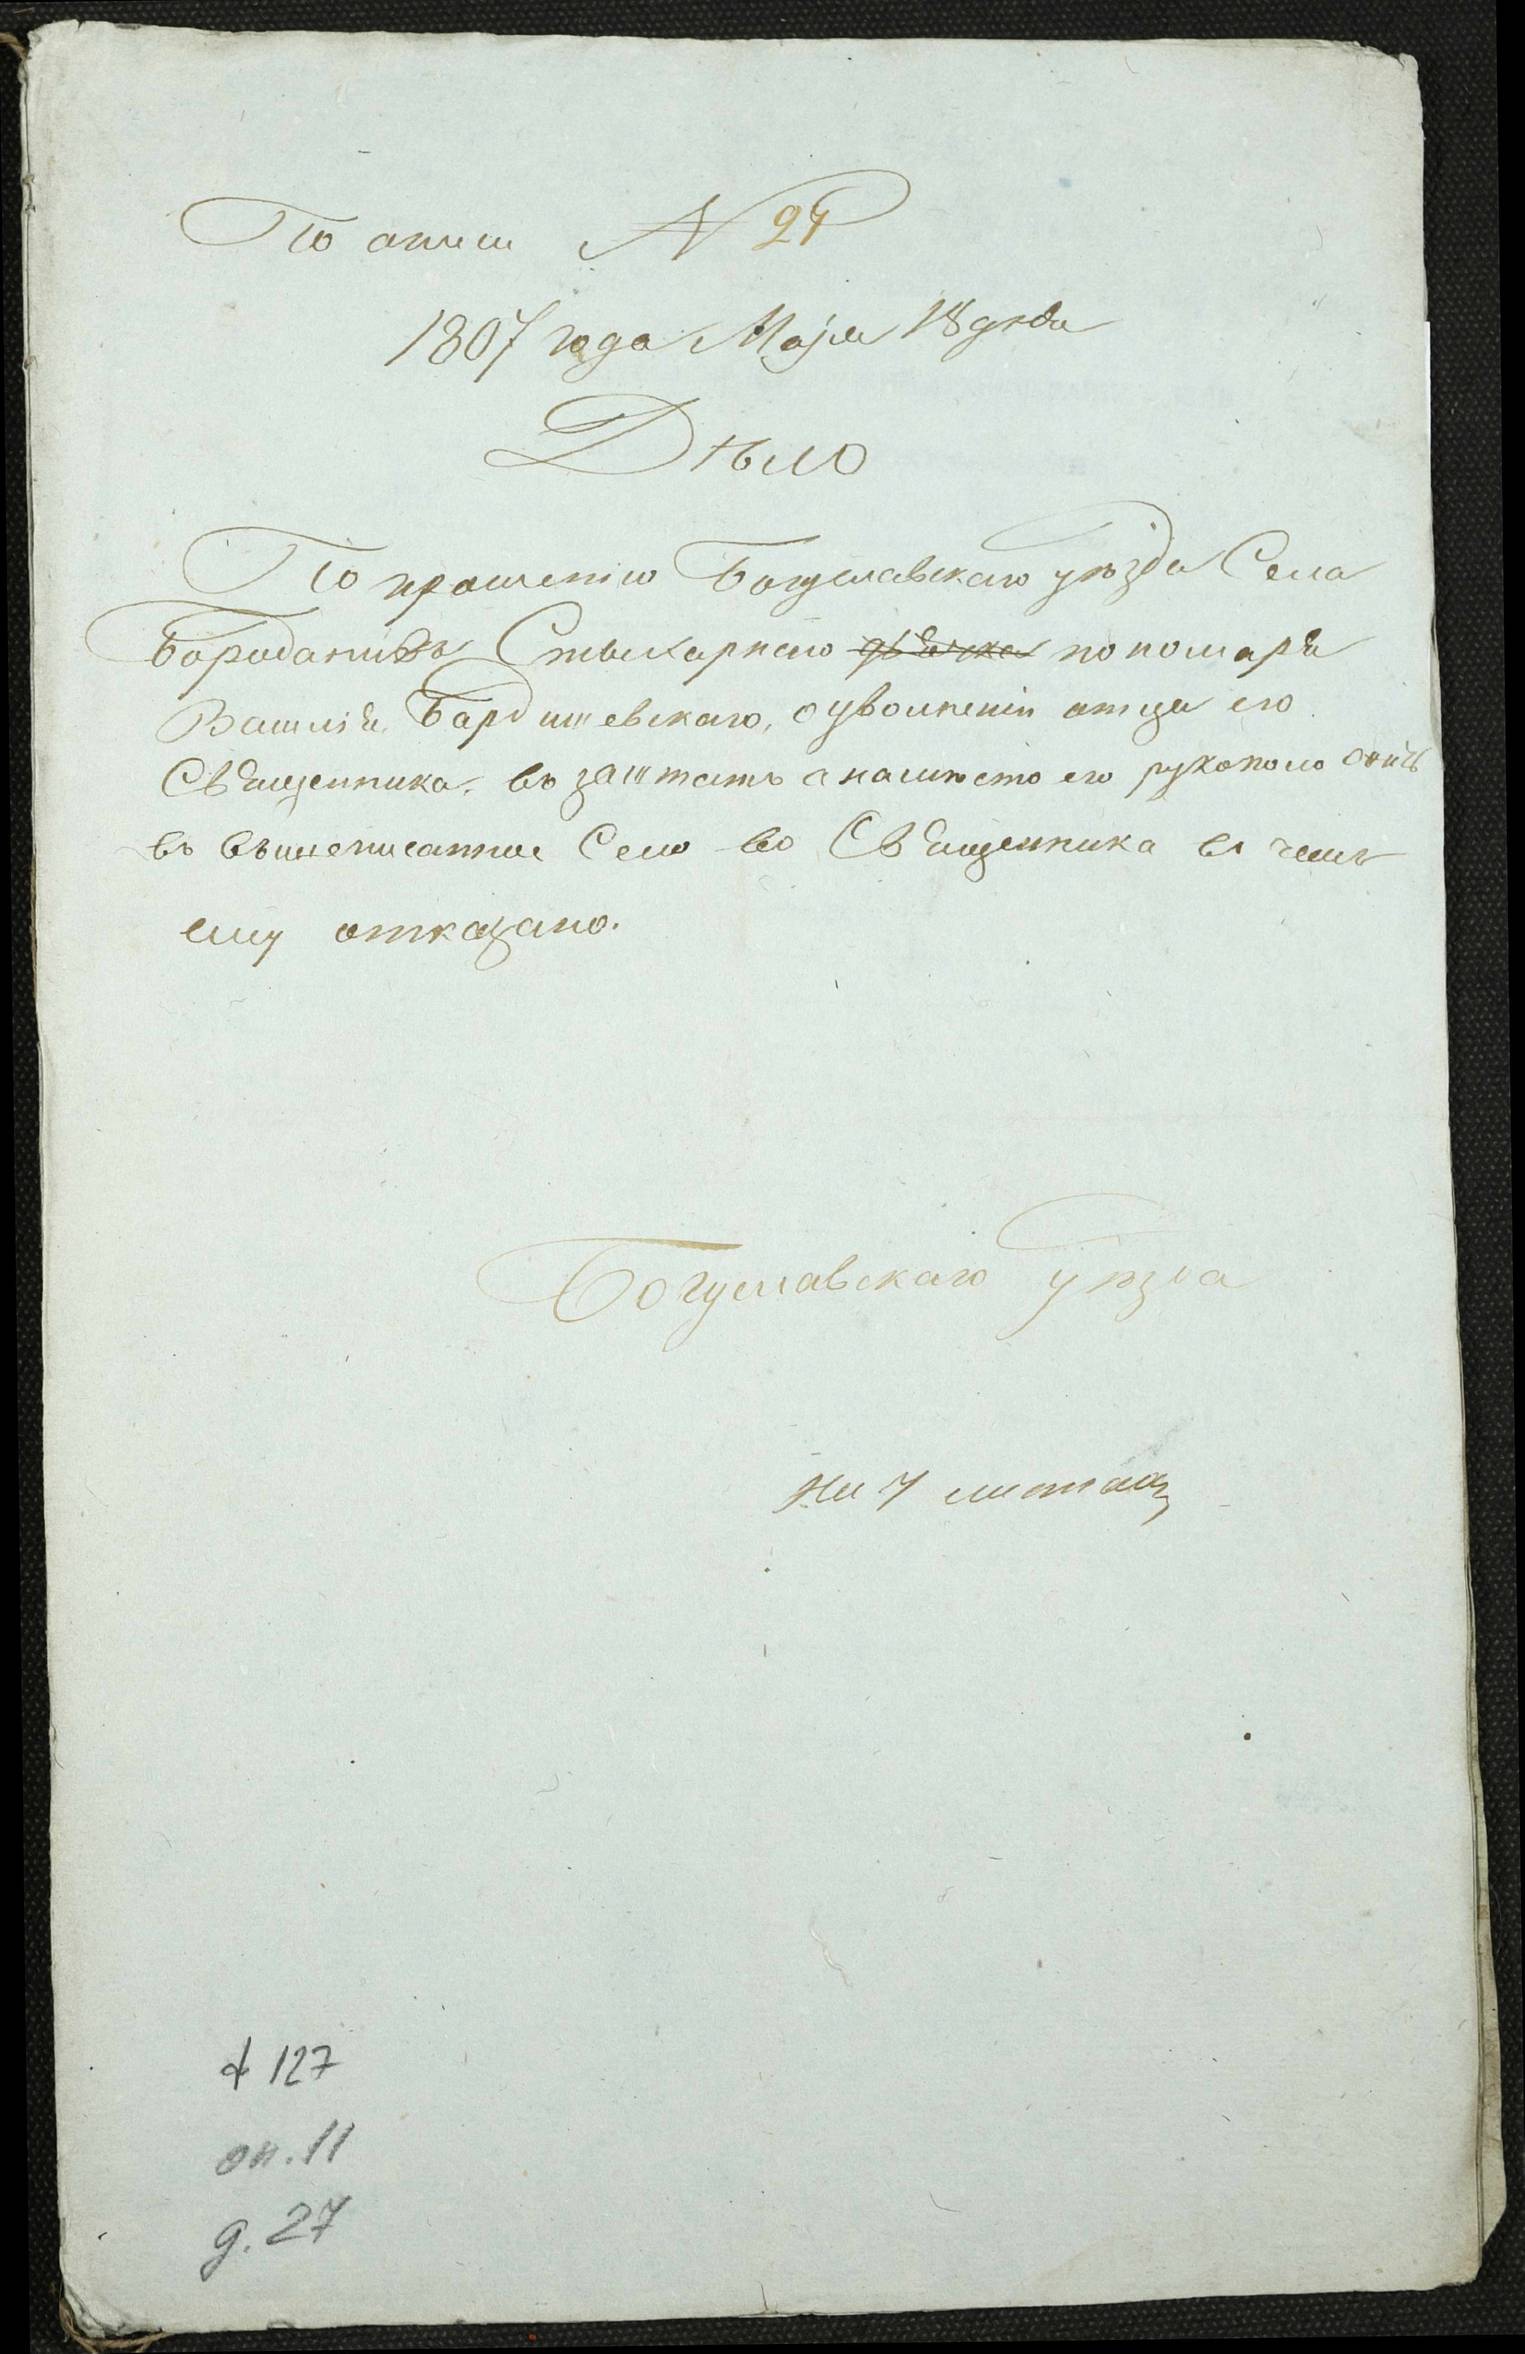 По описи № 27
1807 года Маїя 18 дня
Дѣло
По прошенію Богуславскаго уѣзда Села
Бородани Стихарнаго дьячка пономаря
Василія Бардишевскаго, о уволненіи отца его
Священника въ заштатъ а намѣсто его рукополо
въ вышеписанное Село во Священника в чемъ
ему отказано.
Богуславскаго уѣзда
На 7 листахъ
ф 127
оп. 11
д. 27